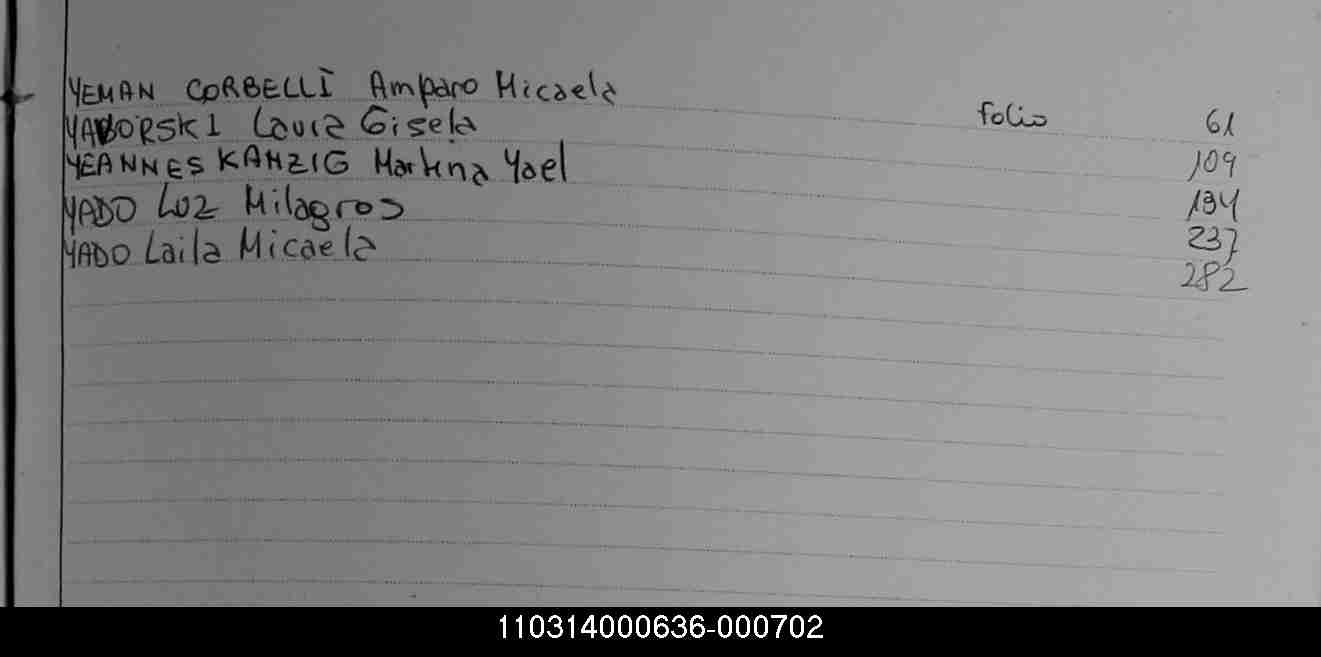 YEMAN CORBELLI Amparo Micaela folio 61
YABORSKI Laura Gisela 109
YEANNES KAHZIG Martina Yael 134
YADO Luz Milagros 237
YADO Laila Micaela 282
110314000636-000702